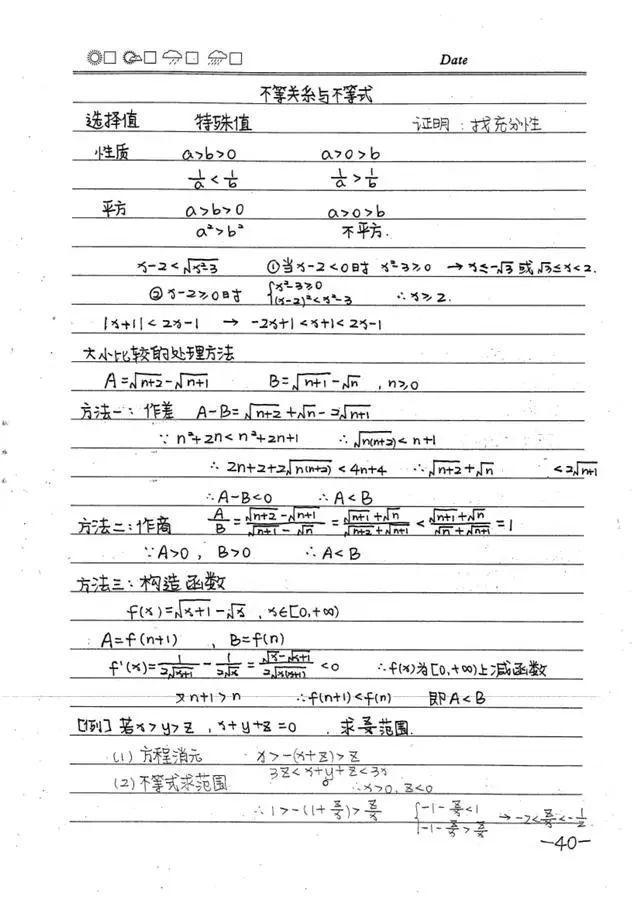 Date
不等关系与不等式
选择值 特殊值 证明：找充分性
性质 a>b>0 a>0>b
1/a < 1/b 1/a > 1/b
平方 a>b>0 a>0>b
a²>b² 不平方.
x-2<√(x²-3) ①当x-2<0时 x²-3≥0 → x≤-√3 或 √3≤x<2.
②x-2≥0时 {x²-3≥0 (x-2)²<x²-3 ∴x≥2.
|x+1|<2x-1 → -2x+1<x+1<2x-1
大小比较的处理方法
A=√(n+2)-√(n+1) B=√(n+1)-√n , n≥0
方法一：作差 A-B=√(n+2)+√n-2√(n+1)
∵n²+2n<n²+2n+1 ∴√(n(n+2))<n+1
∴2n+2+2√(n(n+2))<4n+4 ∴√(n+2)+√n <2√(n+1)
∴A-B<0 ∴A<B
方法二：作商 A/B=(√(n+2)-√(n+1))/(√(n+1)-√n)=(√(n+1)+√n)/(√(n+2)+√(n+1))<(√(n+1)+√n)/(√n+√(n+1))=1
∵A>0, B>0 ∴A<B
方法三：构造函数
f(x)=√(x+1)-√x , x∈[0,+∞)
A=f(n+1) , B=f(n)
f'(x)=1/(2√(x+1))-1/(2√x)=(√x-√(x+1))/(2√(x(x+1)))<0 ∴f(x)为[0,+∞)上减函数
又n+1>n ∴f(n+1)<f(n) 即A<B
[例]若x>y>z , x+y+z=0 , 求z/x范围.
(1)方程消元 x>-(x+z)>z
(2)不等式求范围 3z<x+y+z<3x
∴x>0, z<0
∴1>-(1+z/x)>z/x {-1-z/x<1 -1-z/x>z/x → -2<z/x<-1/2
-40-